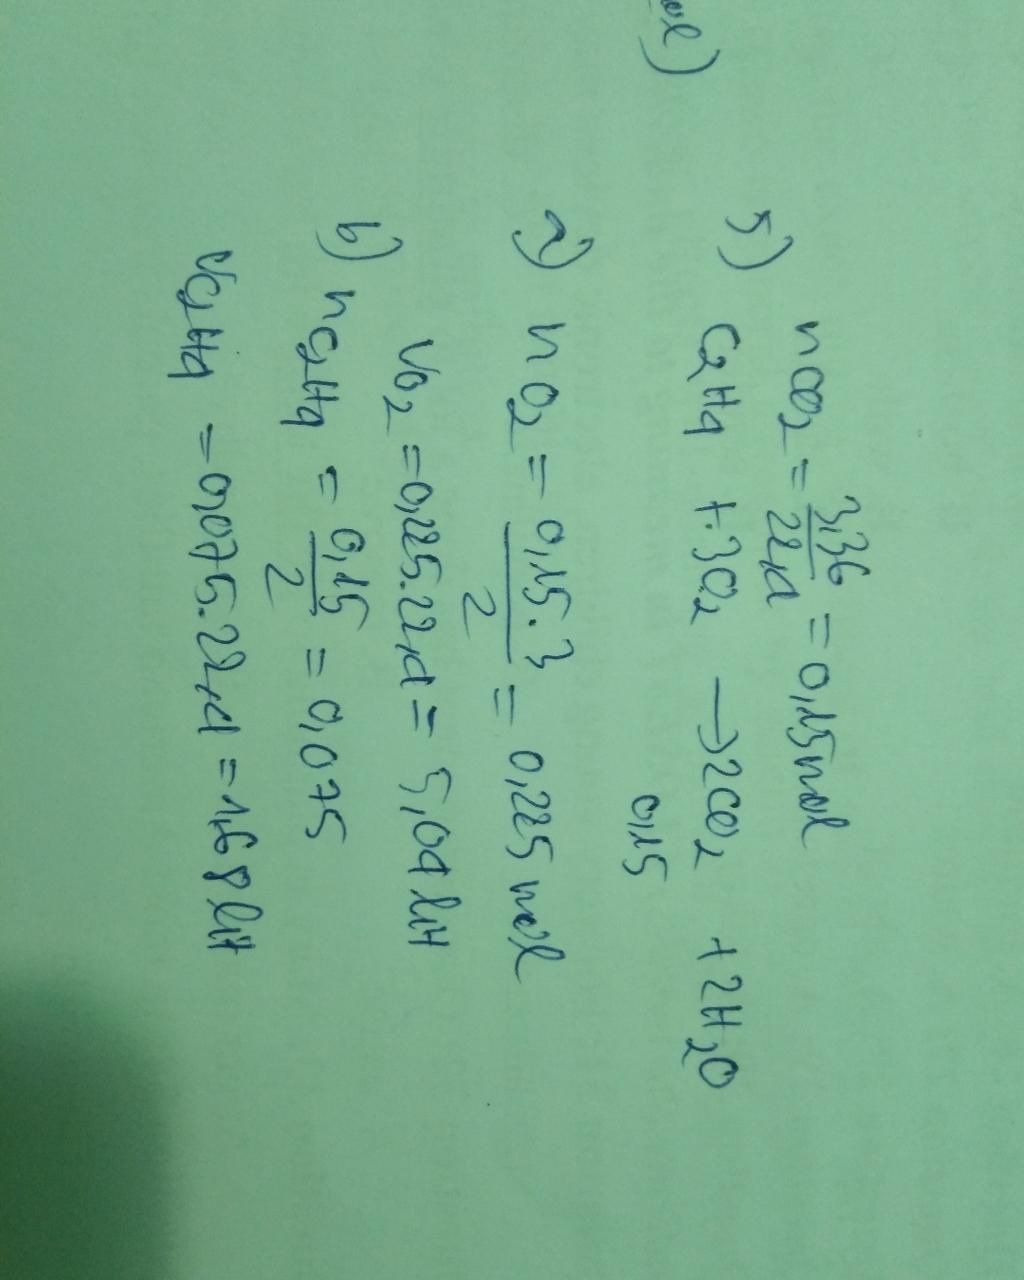 ol)
5) nCO2 = 3,36/22,4 = 0,15 mol
C2H4 + 3O2 → 2CO2 + 2H2O
0,15
a) nO2 = 0,15.3/2 = 0,225 mol
VO2 = 0,225.22,4 = 5,04 lít
b) nC2H4 = 0,15/2 = 0,075
VC2H4 = 0,075.22,4 = 1,68 lít